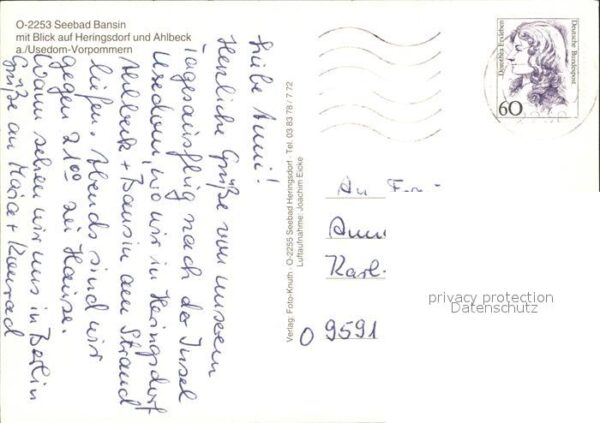 O-2253 Seebad Bansin
mit Blick auf Heringsdorf und Ahlbeck
a./Usedom-Vorpommern
Liebe Anni!
Herzliche Grüße von unserem
Tagesausflug nach der Insel
Usedom, wo wir in Heringsdorf
Ahlbeck + Bansin am Strand
liefen. Abends sind wir
gegen 21⁰⁰ zu Hause.
Wann sehen wir uns in Berlin
Grüße an Maria + Konrad
Verlag: Foto-Knuth · O-2255 Seebad Heringsdorf · Tel. 03 83 78 / 7 72
Luftaufnahme: Joachim Eicke
Dorothea Erxleben
Deutsche Bundespost
60
An
Karl-
O 9591
privacy protection
Datenschutz